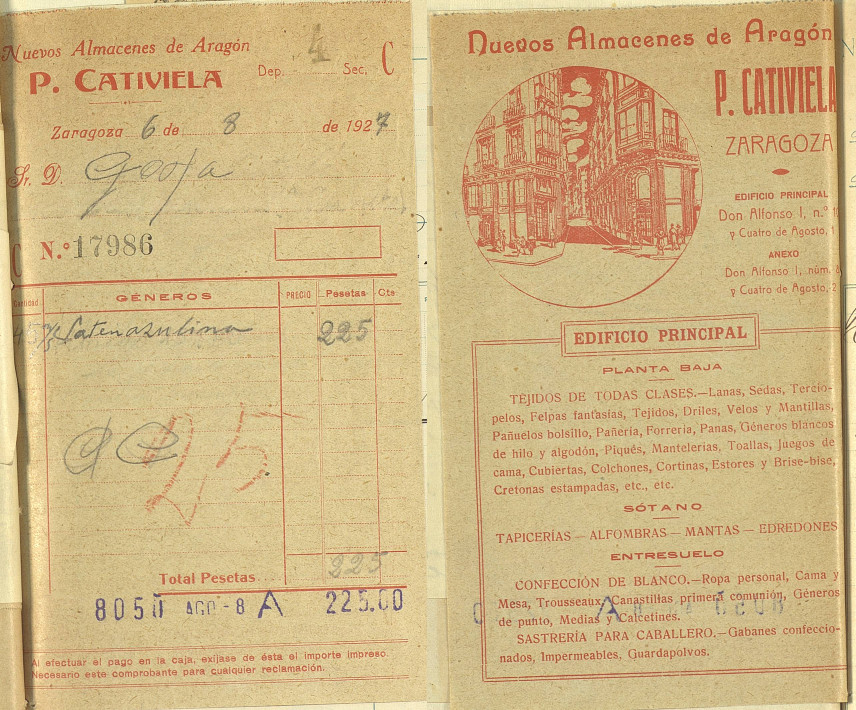 Nuevos Almacenes de Aragón
P. CATIVIELA
Dep. 4 Sec. C
Zaragoza 6 de 8 de 1927
Sr. D.
C N.º 17986
Cantidad GÉNEROS PRECIO Pesetas Cts
Saten azulina 225
25
225
Total Pesetas
8050 AGO-8 A 225.00
Al efectuar el pago en la caja, exíjase de ésta el importe impreso.
Necesario este comprobante para cualquier reclamación.
Nuevos Almacenes de Aragón
P. CATIVIELA
ZARAGOZA
EDIFICIO PRINCIPAL
Don Alfonso I, n.º
y Cuatro de Agosto,
ANEXO
Don Alfonso I, núm.
y Cuatro de Agosto, 2
EDIFICIO PRINCIPAL
PLANTA BAJA
TEJIDOS DE TODAS CLASES.—Lanas, Sedas, Tercio-
pelos, Felpas fantasías, Tejidos, Driles, Velos y Mantillas,
Pañuelos bolsillo, Pañería, Forrería, Panas, Géneros blancos
de hilo y algodón, Piqués, Mantelerías, Toallas, Juegos de
cama, Cubiertas, Colchones, Cortinas, Estores y Brise-bise,
Cretonas estampadas, etc., etc.
SÓTANO
TAPICERÍAS — ALFOMBRAS — MANTAS — EDREDONES
ENTRESUELO
CONFECCIÓN DE BLANCO.—Ropa personal, Cama y
Mesa, Trousseaux, Canastillas primera comunión, Géneros
de punto, Medias y Calcetines.
SASTRERÍA PARA CABALLERO.—Gabanes confeccio-
nados, Impermeables, Guardapolvos.